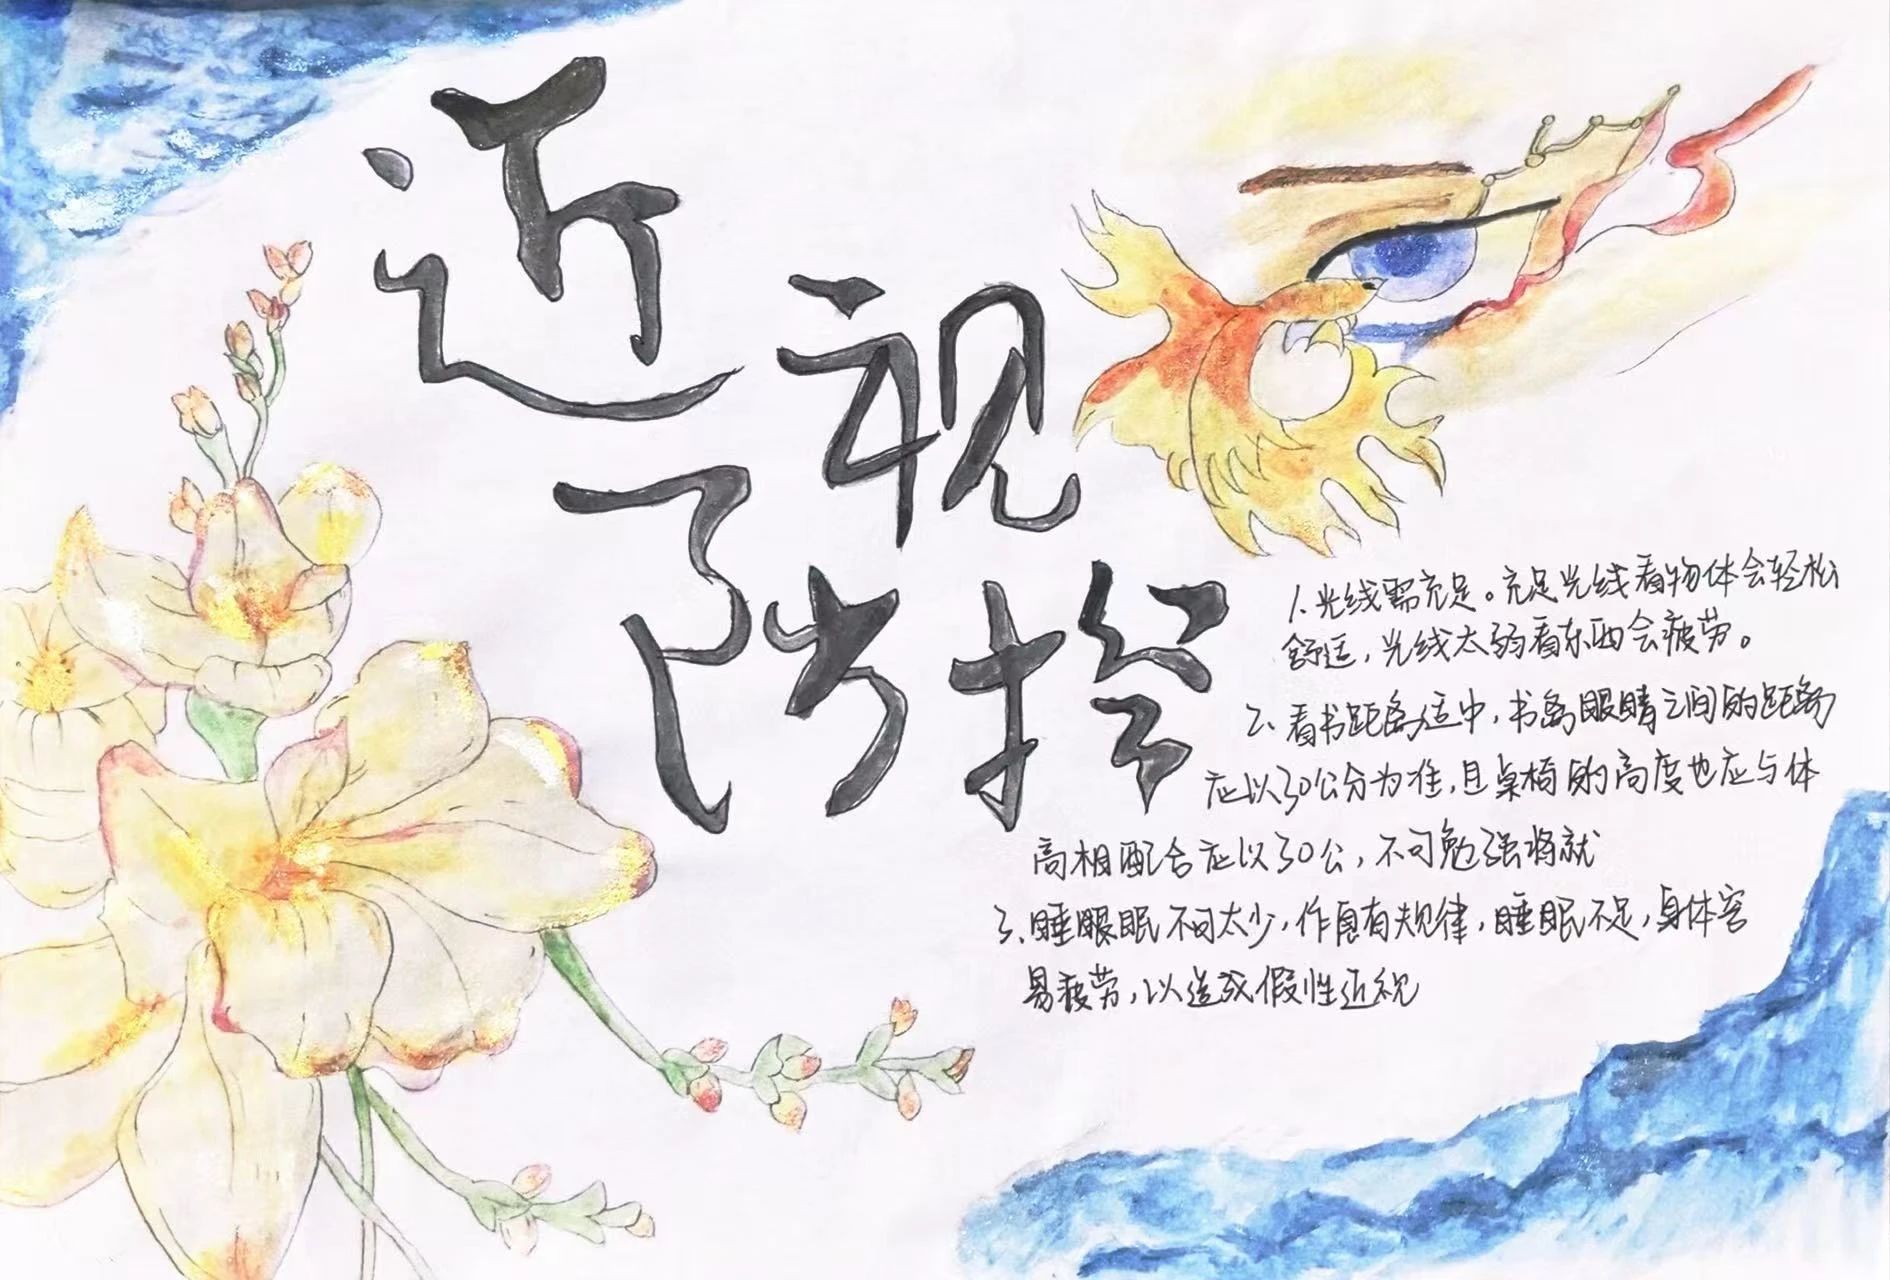 近视
防控
1.光线需充足。充足光线看物体会轻松
舒适，光线太弱看东西会疲劳。
2、看书距离适中，书离眼睛之间的距离
应以30公分为准，且桌椅的高度也应与体
高相配合应以30公，不可勉强将就
3、睡眼眠不可太少，作息有规律，睡眠不足，身体容
易疲劳，以造成假性近视